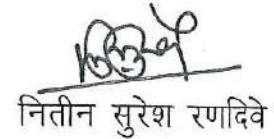 नितीन सुरेश रणदिवे